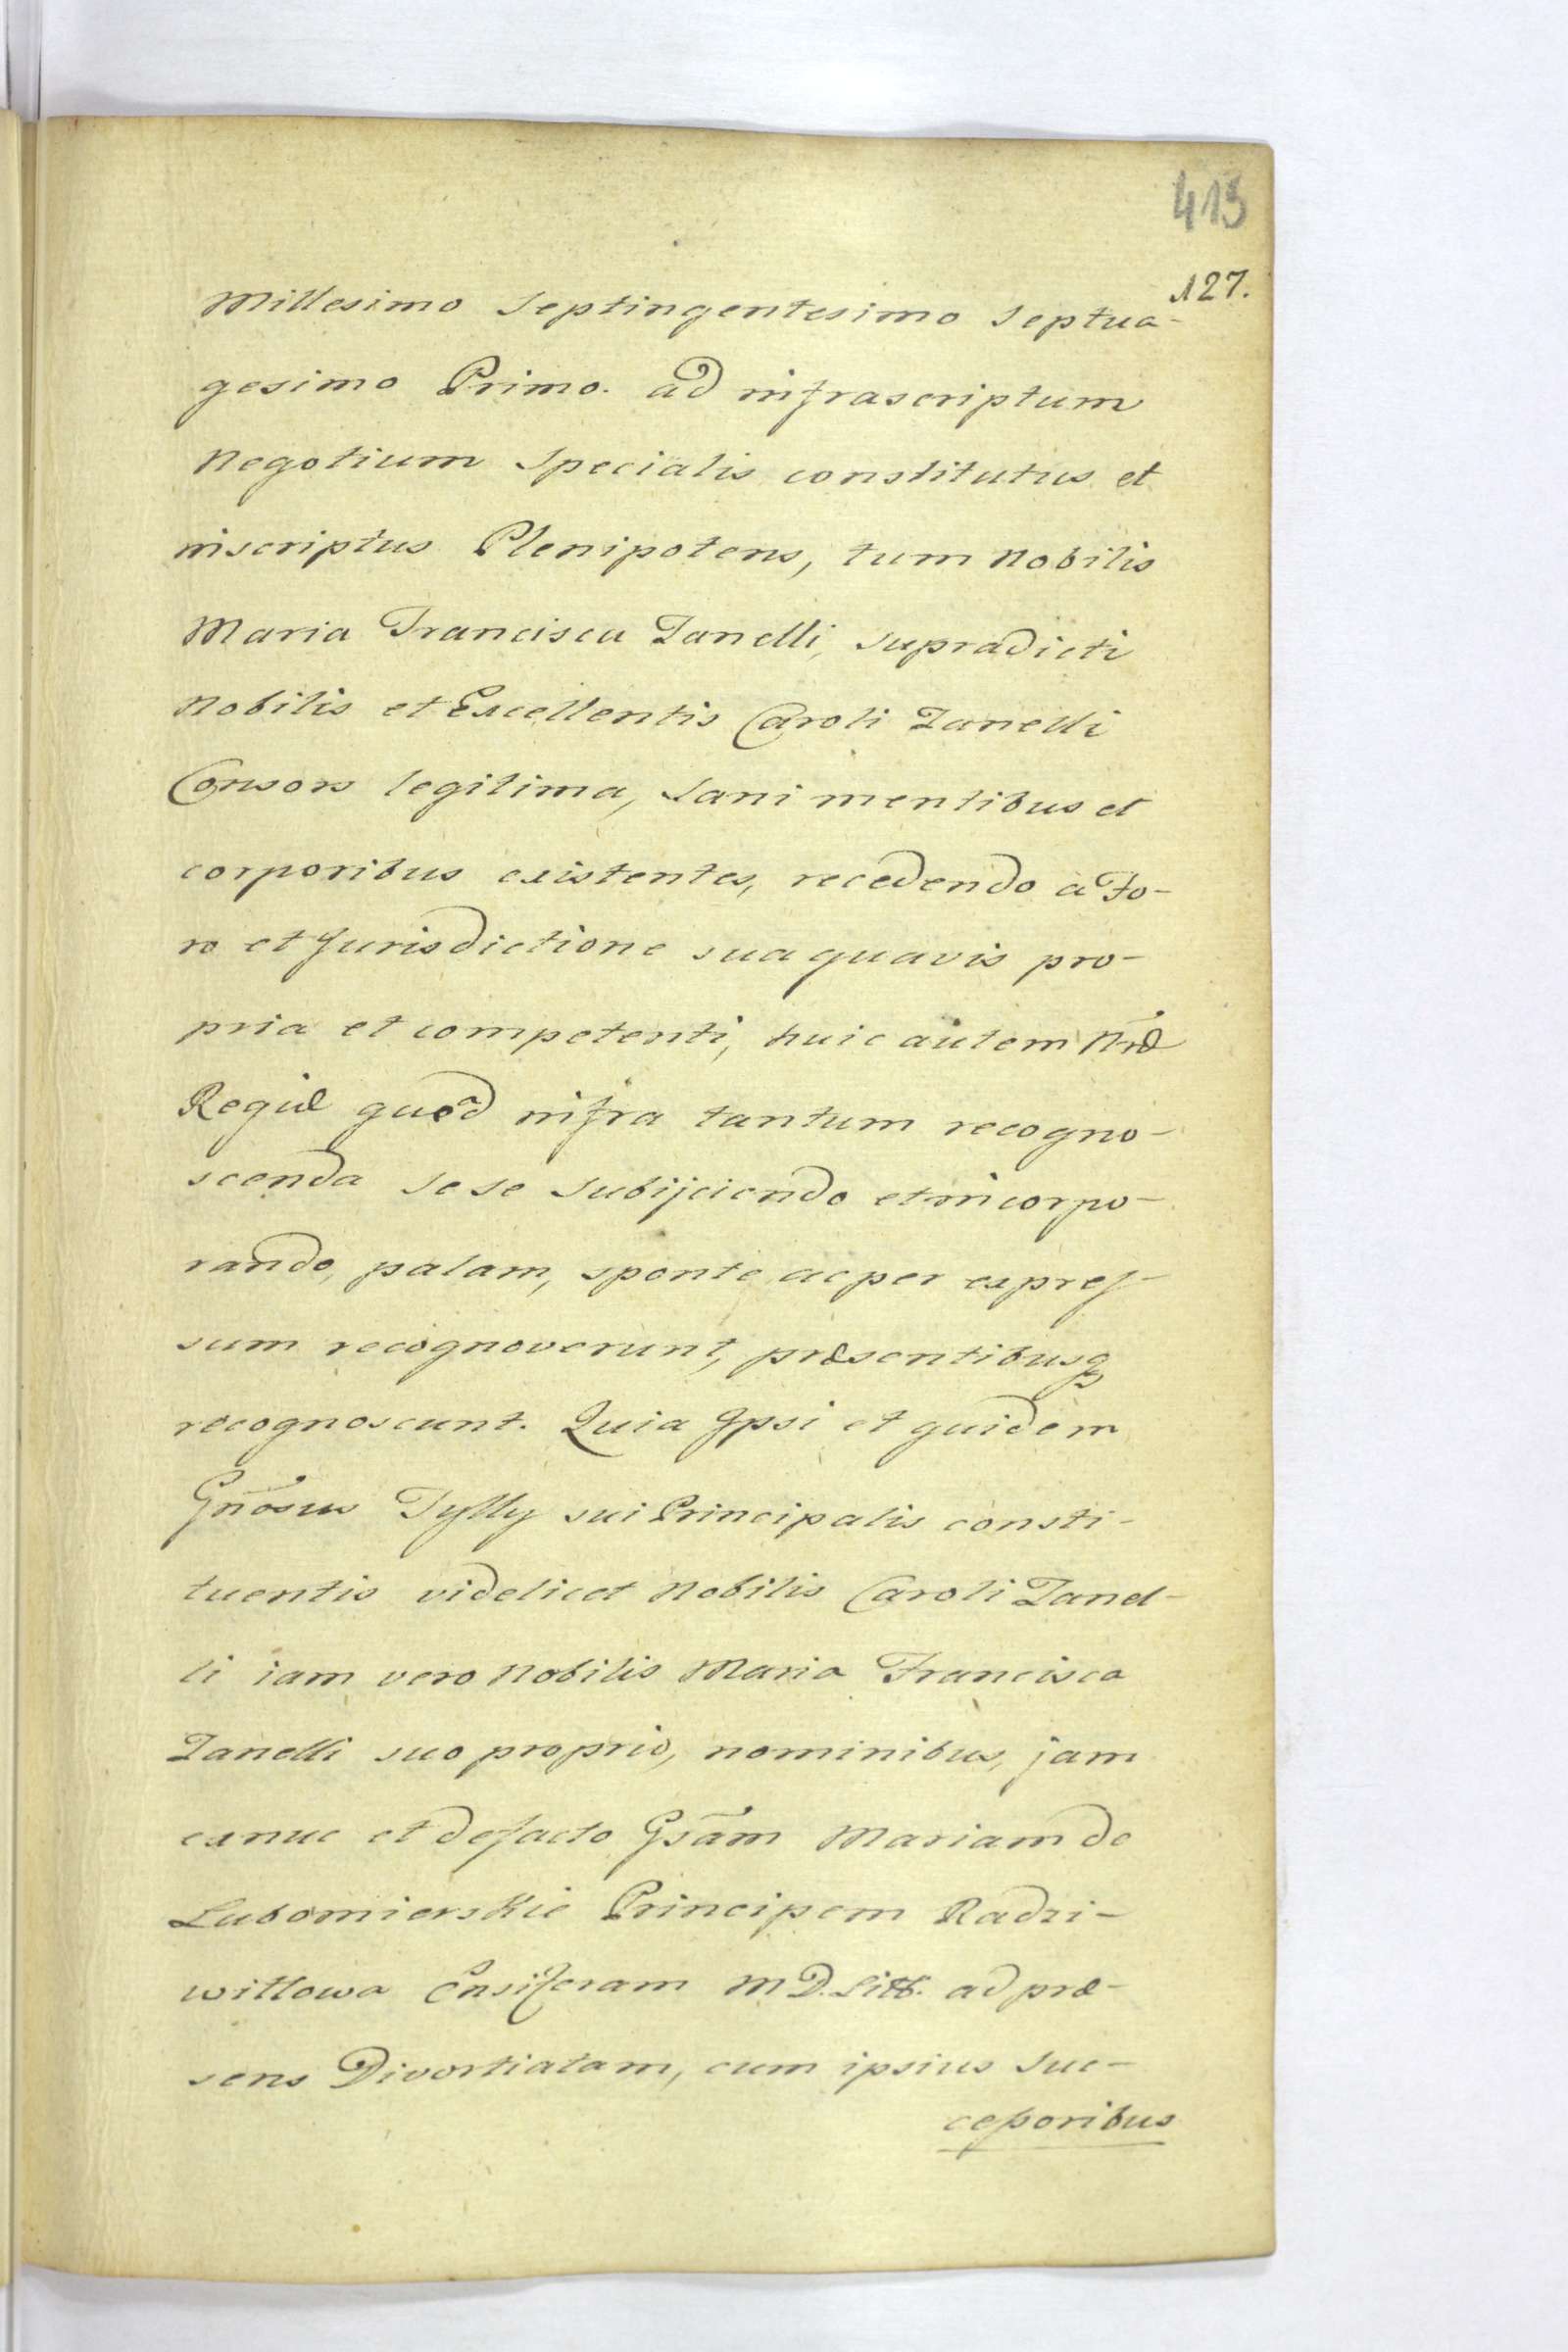 413
127.
Millesimo Septingentesimo Septua-
gesimo Primo. ad infrascriptum
Negotium Specialis constitutus et
inscriptus Plenipotens, tum Nobilis
Maria Francisca Zanelli, supradicti
Nobilis et Excellentis Caroli Zanelli
Consors legitima, sani mentibus et
corporibus existentes, recedendo a Fo-
ro et Jurisdictione sua quavis pro-
pria et competenti, huic autem Nræ
Regiæ quoad infra tantum recogno-
scenda sese subijciendo et incorpo-
rando, palam, sponte ac per expres-
sum recognoverunt, præsentibusq
recognoscunt. Quia Ipsi et quidem
Gnosus Tylly sui Principalis consti-
tuentis videlicet Nobilis Caroli Zanel-
li iam vero Nobilis Maria Francisca
Zanelli suo proprio, nominibus, jam
exnuc et defacto Gsam Mariam de
Lubomierskie Principem Radzi-
wiłłowa Ensiferam M D. Litt. ad præ-
sens Divortiatam, cum ipsius suc-
cessoribus